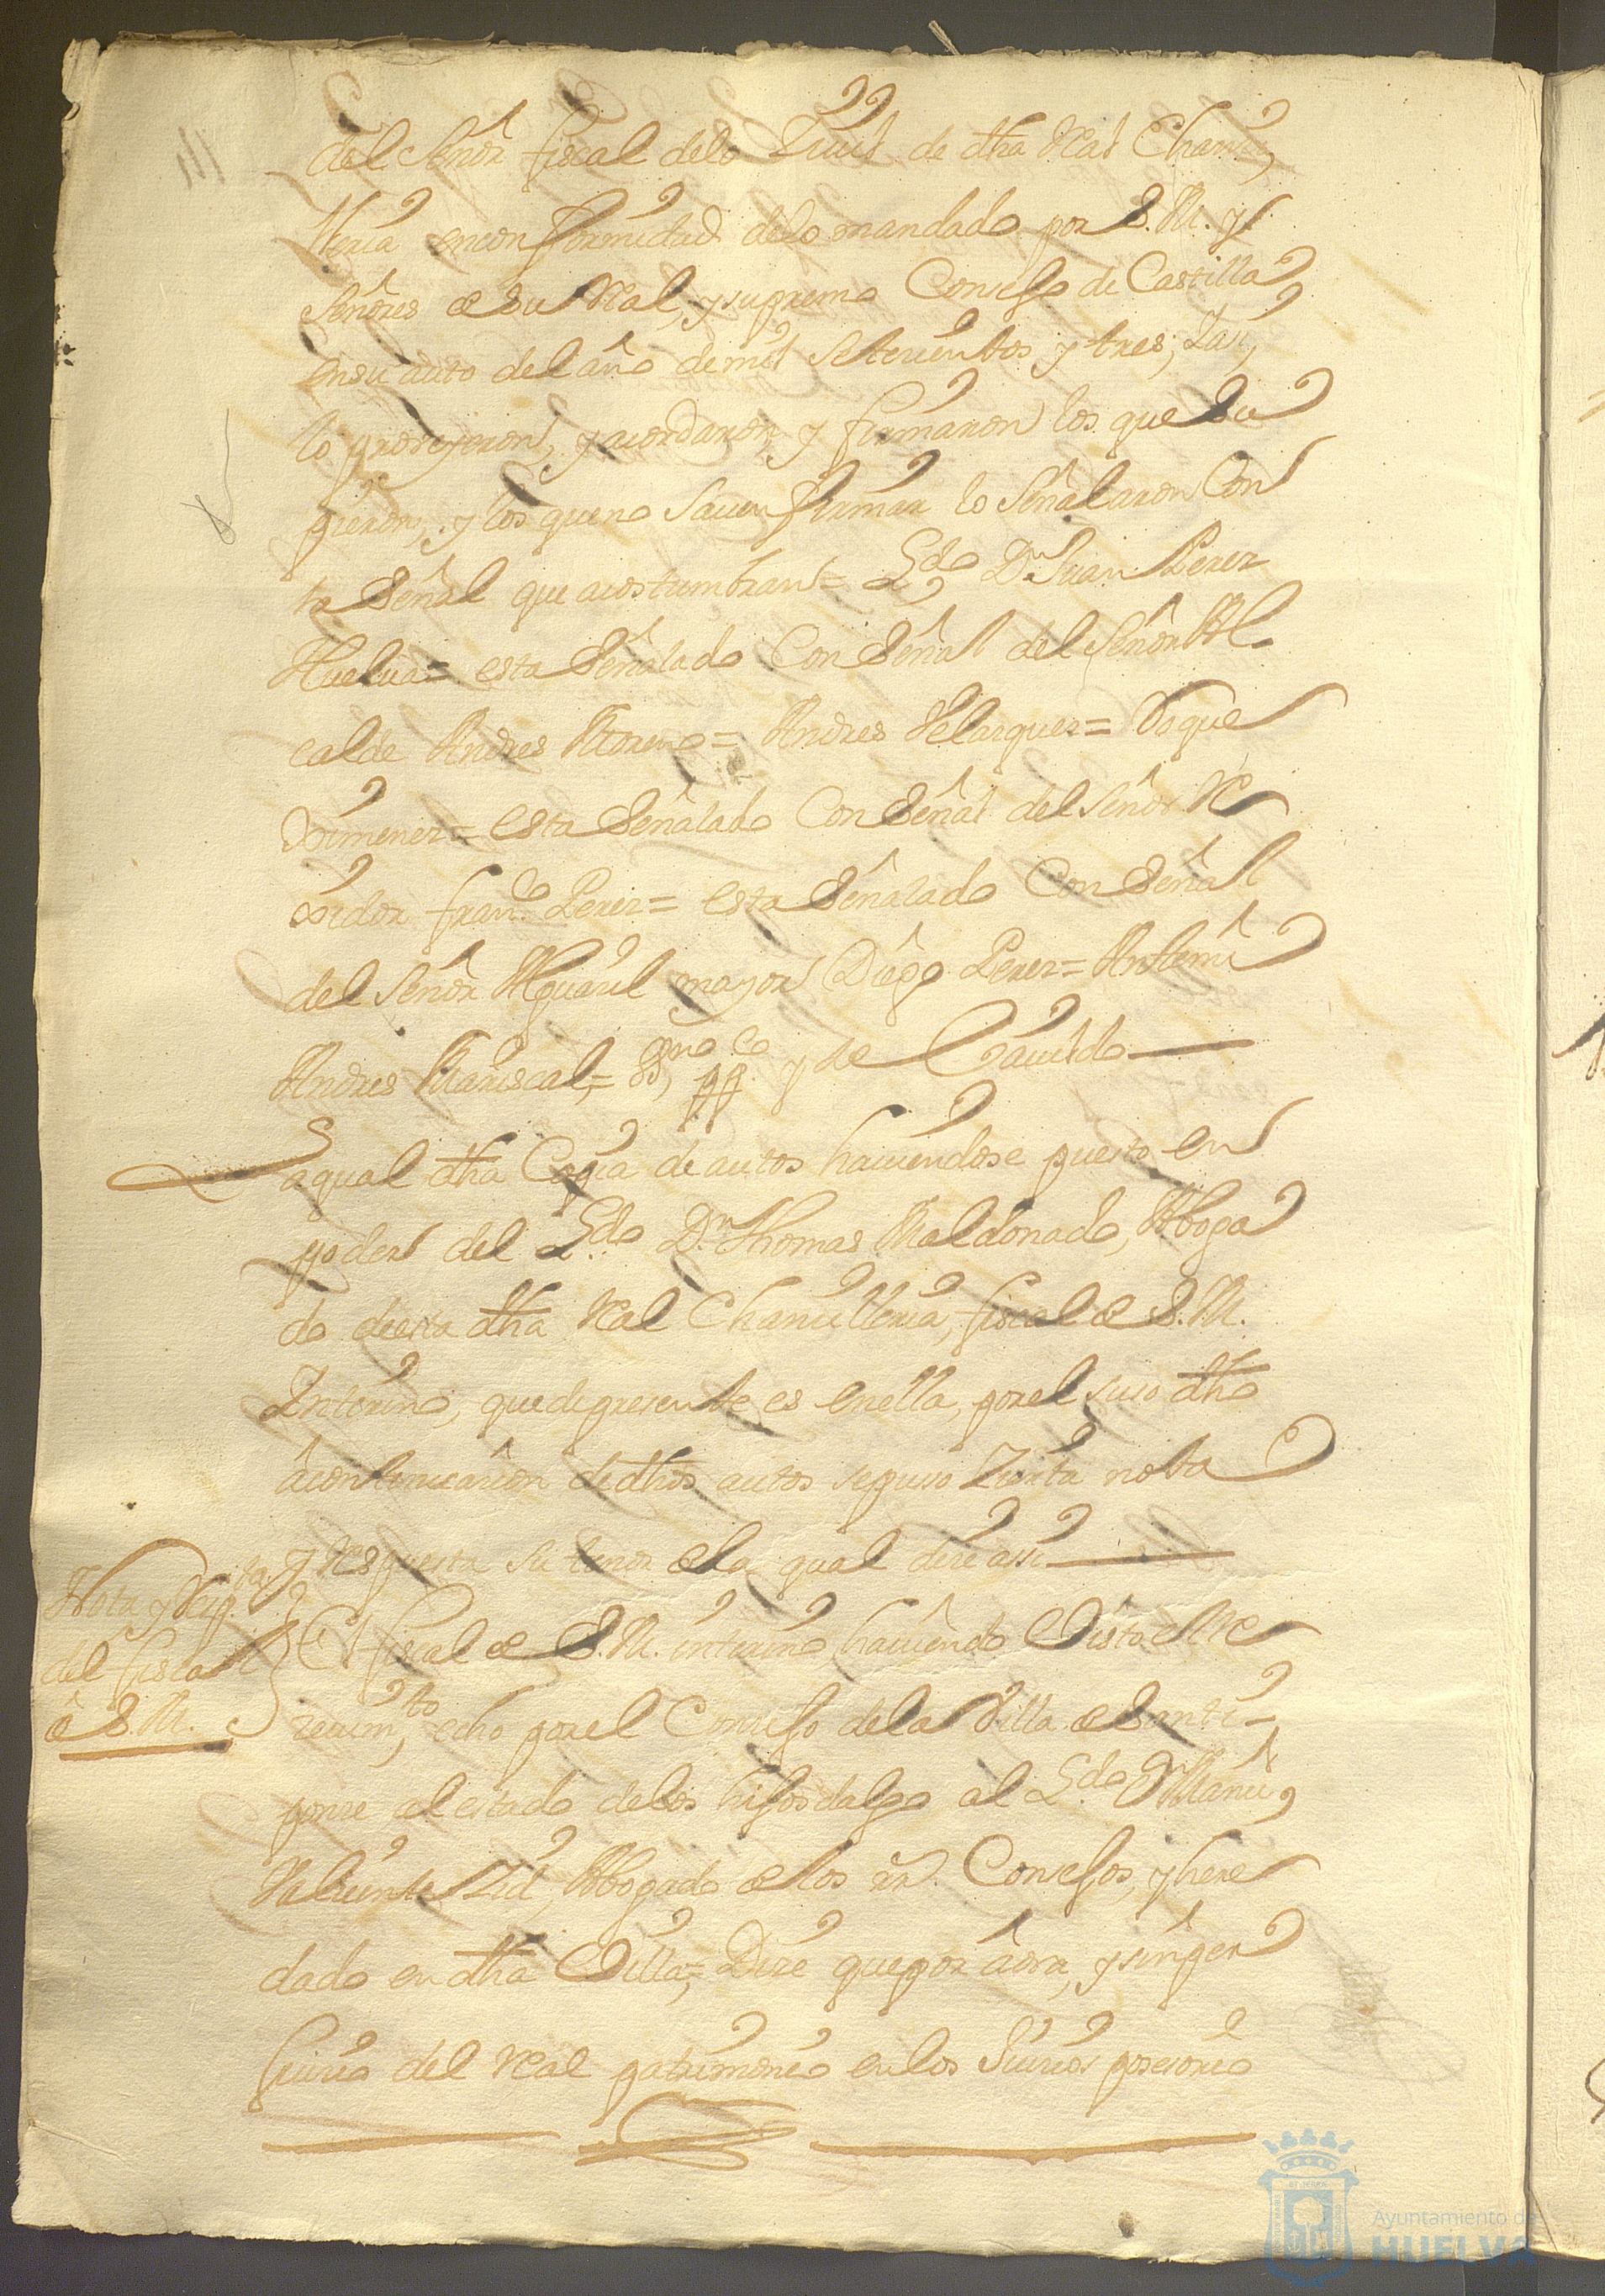 del Señor fiscal delo Ziuil de dha Real Chanzi,
lleria enconformidad delo mandado por S. M. y
Señores de Su Real, y supremo Consejo de Castilla
ensu auto del año demil Setezientos y tres, Iasi,
lo proveyeron, y acordaron, y firmaron los que Su
pieron, y los queno Saven firmar lo Señalaron Con
la Señal que acostumbran = Lzdo Dn Juan Perez
Huelua = esta Señalado Con Señal del Señor Al
calde Andres Moreno = Andres Velazquez = Roque
Ximenez = esta Señalado Con Señal del Señor Re
xidor franco Perez = esta Señalado Con Señal
del Señor Alguazil mayor Diego Perez = Antemi
Andres Mariscal, = SSno ppco y de Cavildo
Laqual dha Copia de autos haviendose puesto en
poder del Lzdo Dn Thomas Maldonado, Aboga
do de esta dha Real Chanzilleria, fiscal de S. M.
Interino, quedepresente es enella, porel suso dho
acontinuazion de dhos autos sepuso Zierta nota
y respuesta su tenor dela qual dize assi
Nota y Respta
del fiscal
de S. M.
El fiscal de S. M. interino haviendo Visto el Re
zevimto, echo porel Consejo dela Villa de Santi-
ponze al estado delos hijosdalgo al Lzdo Dn Manl,
Valiente Zid, Abogado de los Rs. Consejos, y here
dado en dha Villa, = Dize quepor aora, y sin per
juizio del Real patrimonio enlos Juizios posesorio
Ayuntamiento de
HUELVA